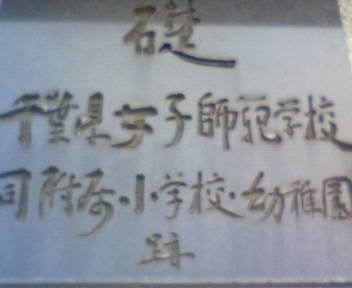 礎
千葉県女子師範学校
同附属小学校・幼稚園
跡